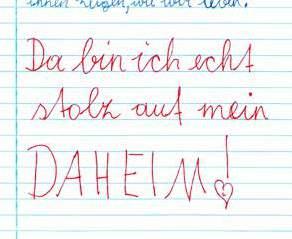 ihnen zeigen, wie wir leben.
Da bin ich echt
stolz auf mein
DAHEIM!